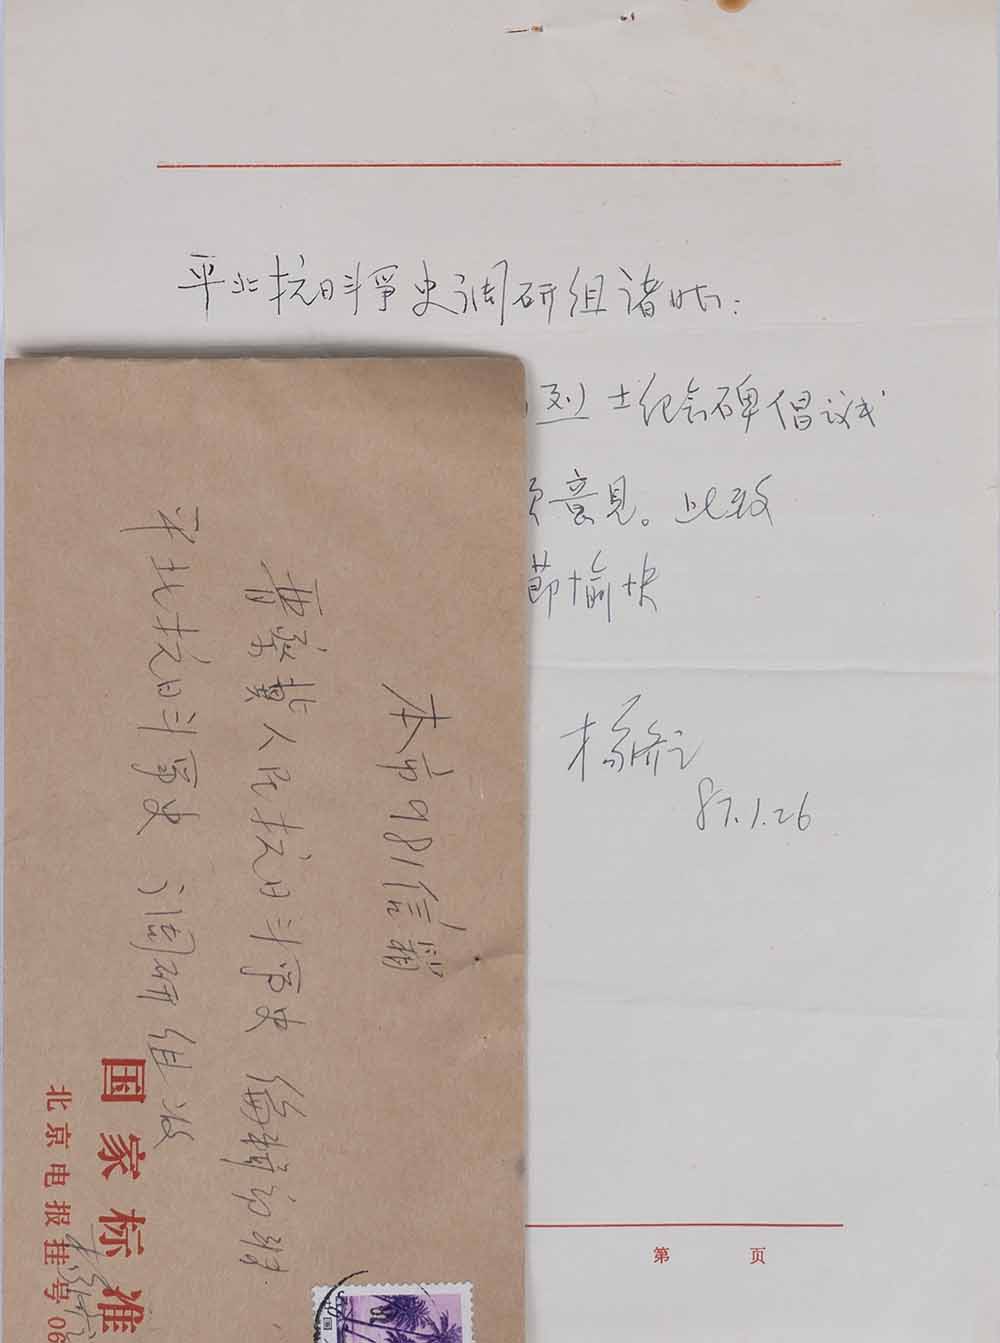 平北抗日斗爭史调研组诸同志:
烈士纪念碑倡议书
意见。此致
節愉快
杨济之
87.1.26
第 页
本市981信箱
晋察冀人民抗日斗爭史编辑部
平北抗日斗爭史调研组收
国家标准
北京电报挂号06